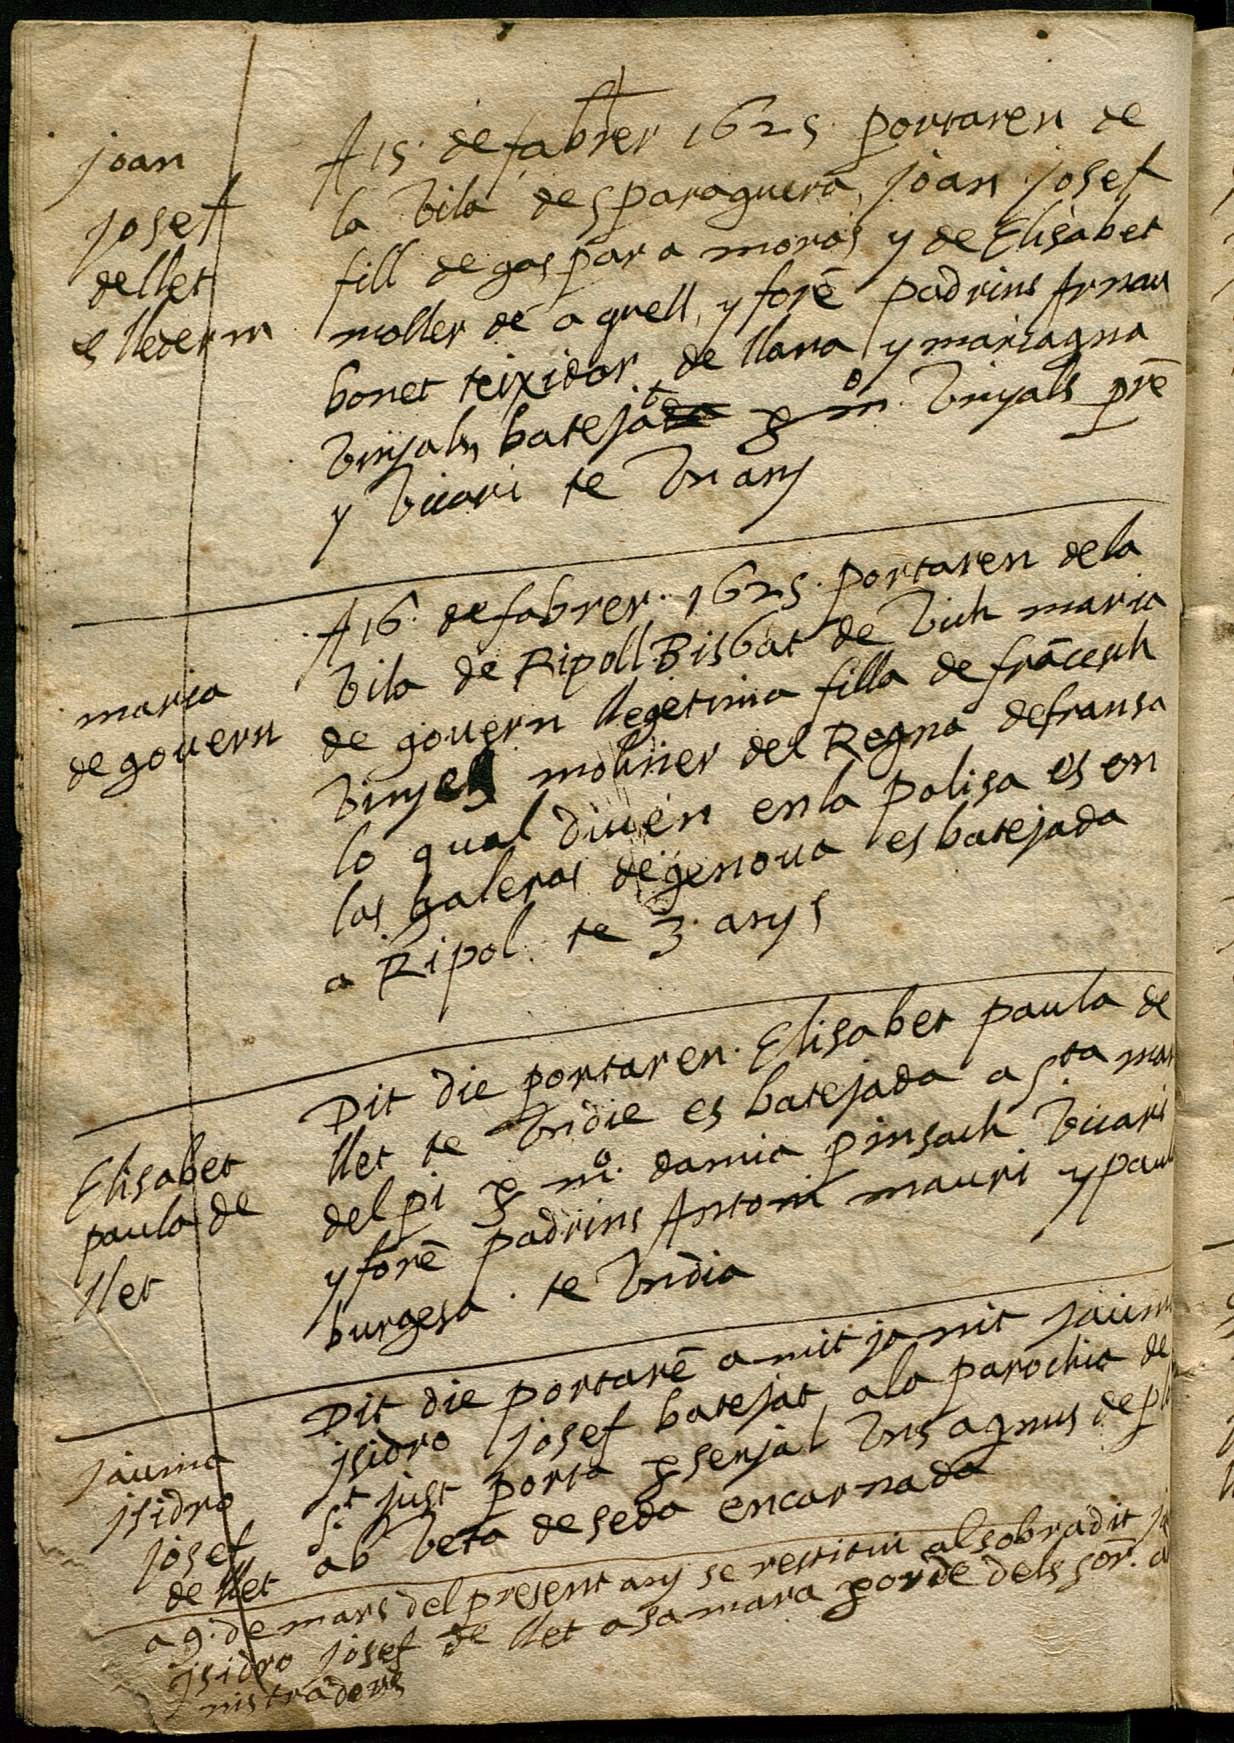 joan
josef
de llet
es llederm
A 15. de fabrer 1625. portaren de
la vila desparaguera, joan josef
fill de gaspar a moras y de Elisabet
moller de aquell, y forē padrins Arnau
bonet teixidor de llana y mariagna
vinyals, batejat p mº. vinyals prē
y vicari te un any
maria
de govern
A 16. de fabrer. 1625. portaren de la
vila de Ripoll Bisbat de Vich maria
de govern llegetima filla de frācesch
vinyes moliner del Regna de fransa
lo qual diuen en la polisa es en
las galeras de genoua es batejada
a Ripol. te 3. anys
Elisabet
paula de
llet
Dit die portaren. Elisabet paula de
llet te un die es batejada a sta mar
del pi p mº. damia pinsach vicari
y forē padrins Antoni mauri y paul
burgesa. te un dia
jauma
jsidro
josef
de llet
Dit die portarē a mitja nit jaum
jsidro josef batejat, a la parochia de
St. just porta p senjal uns agnus de pl
ab veta de seda encarnada
a 9. de mars del present any se restitui al sobradit
jsidro josef de llet a sa mara p orde dels sor. a
nistradors